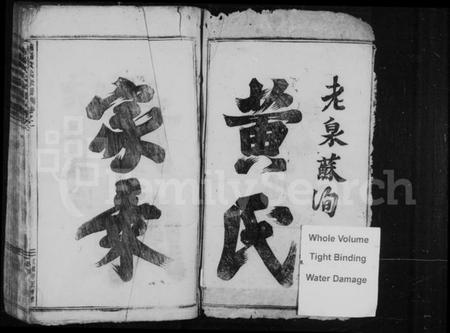 老泉蘇洵
黄氏
家來
Whole Volume
Tight Binding
Water Damage
FamilySearch